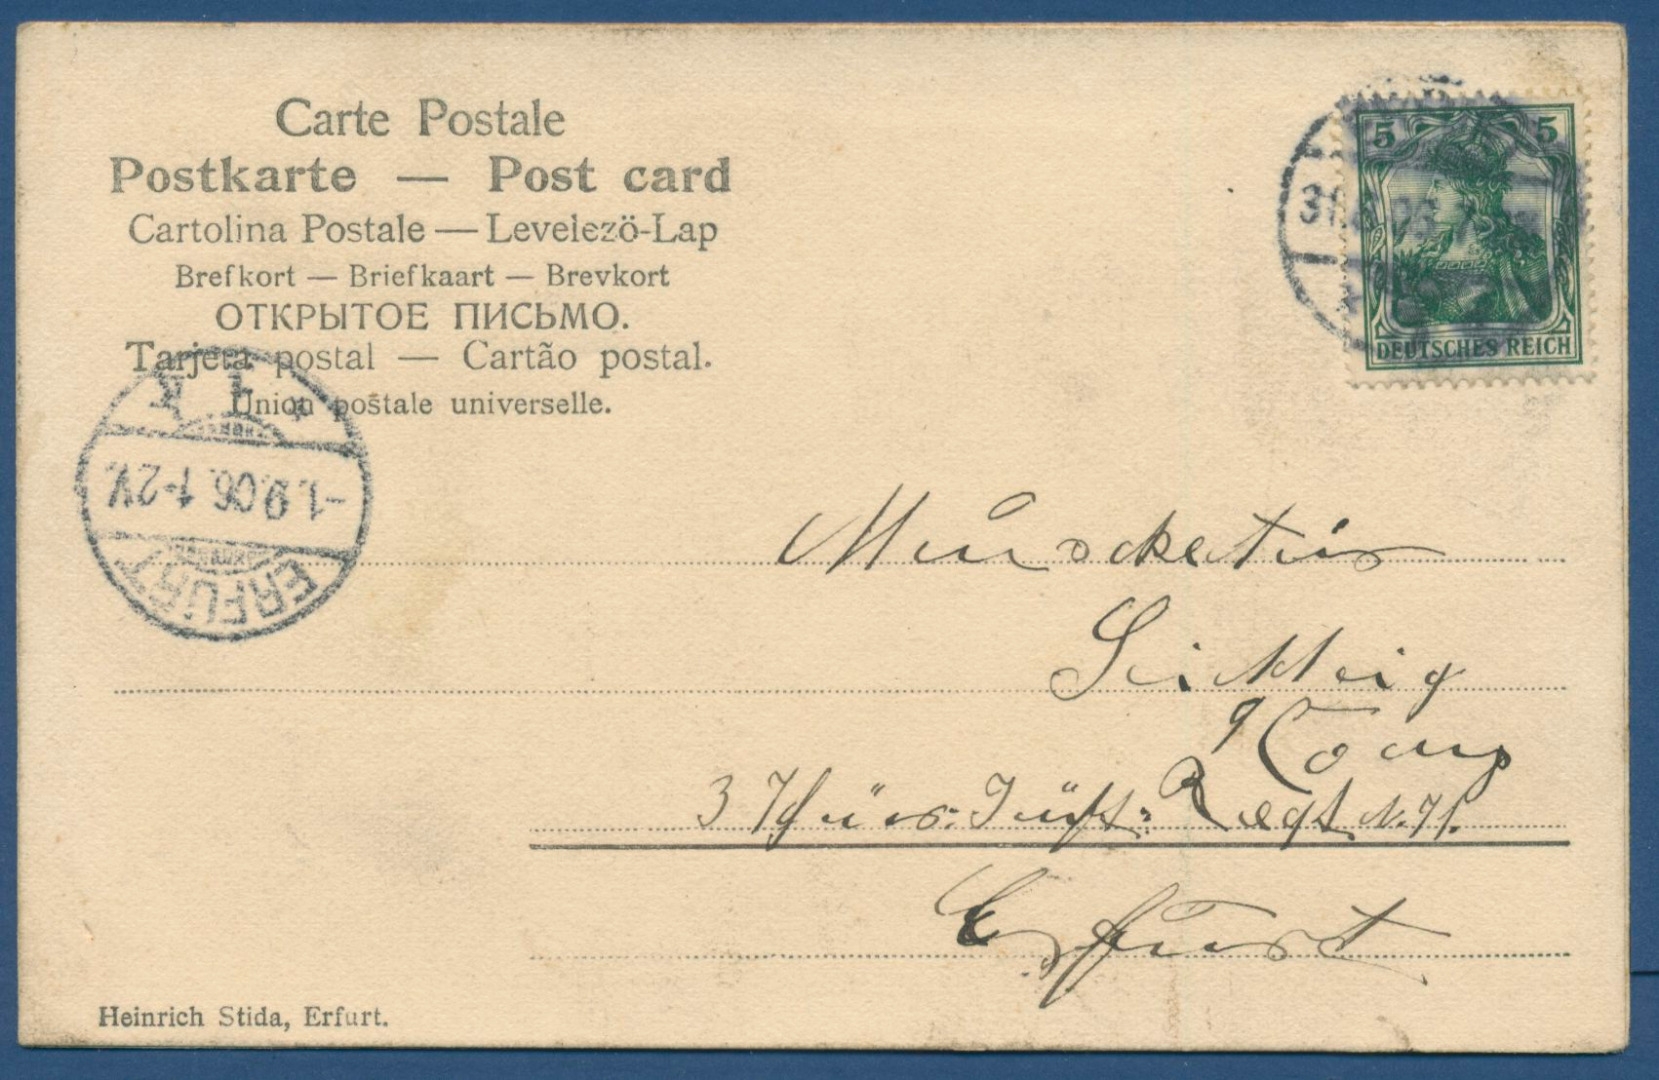 Carte Postale
Postkarte — Post card
Cartolina Postale — Levelező-Lap
Brefkort — Briefkaart — Brevkort
ОТКРЫТОЕ ПИСЬМО.
Tarjeta postal — Cartão postal.
Union postale universelle.
5 5
DEUTSCHES REICH
ERFURT
-1.9.06.1-2V.
Musketier
9 Komp
3 Thür. Inft. Regt. N. 71.
Erfurt
Heinrich Stida, Erfurt.